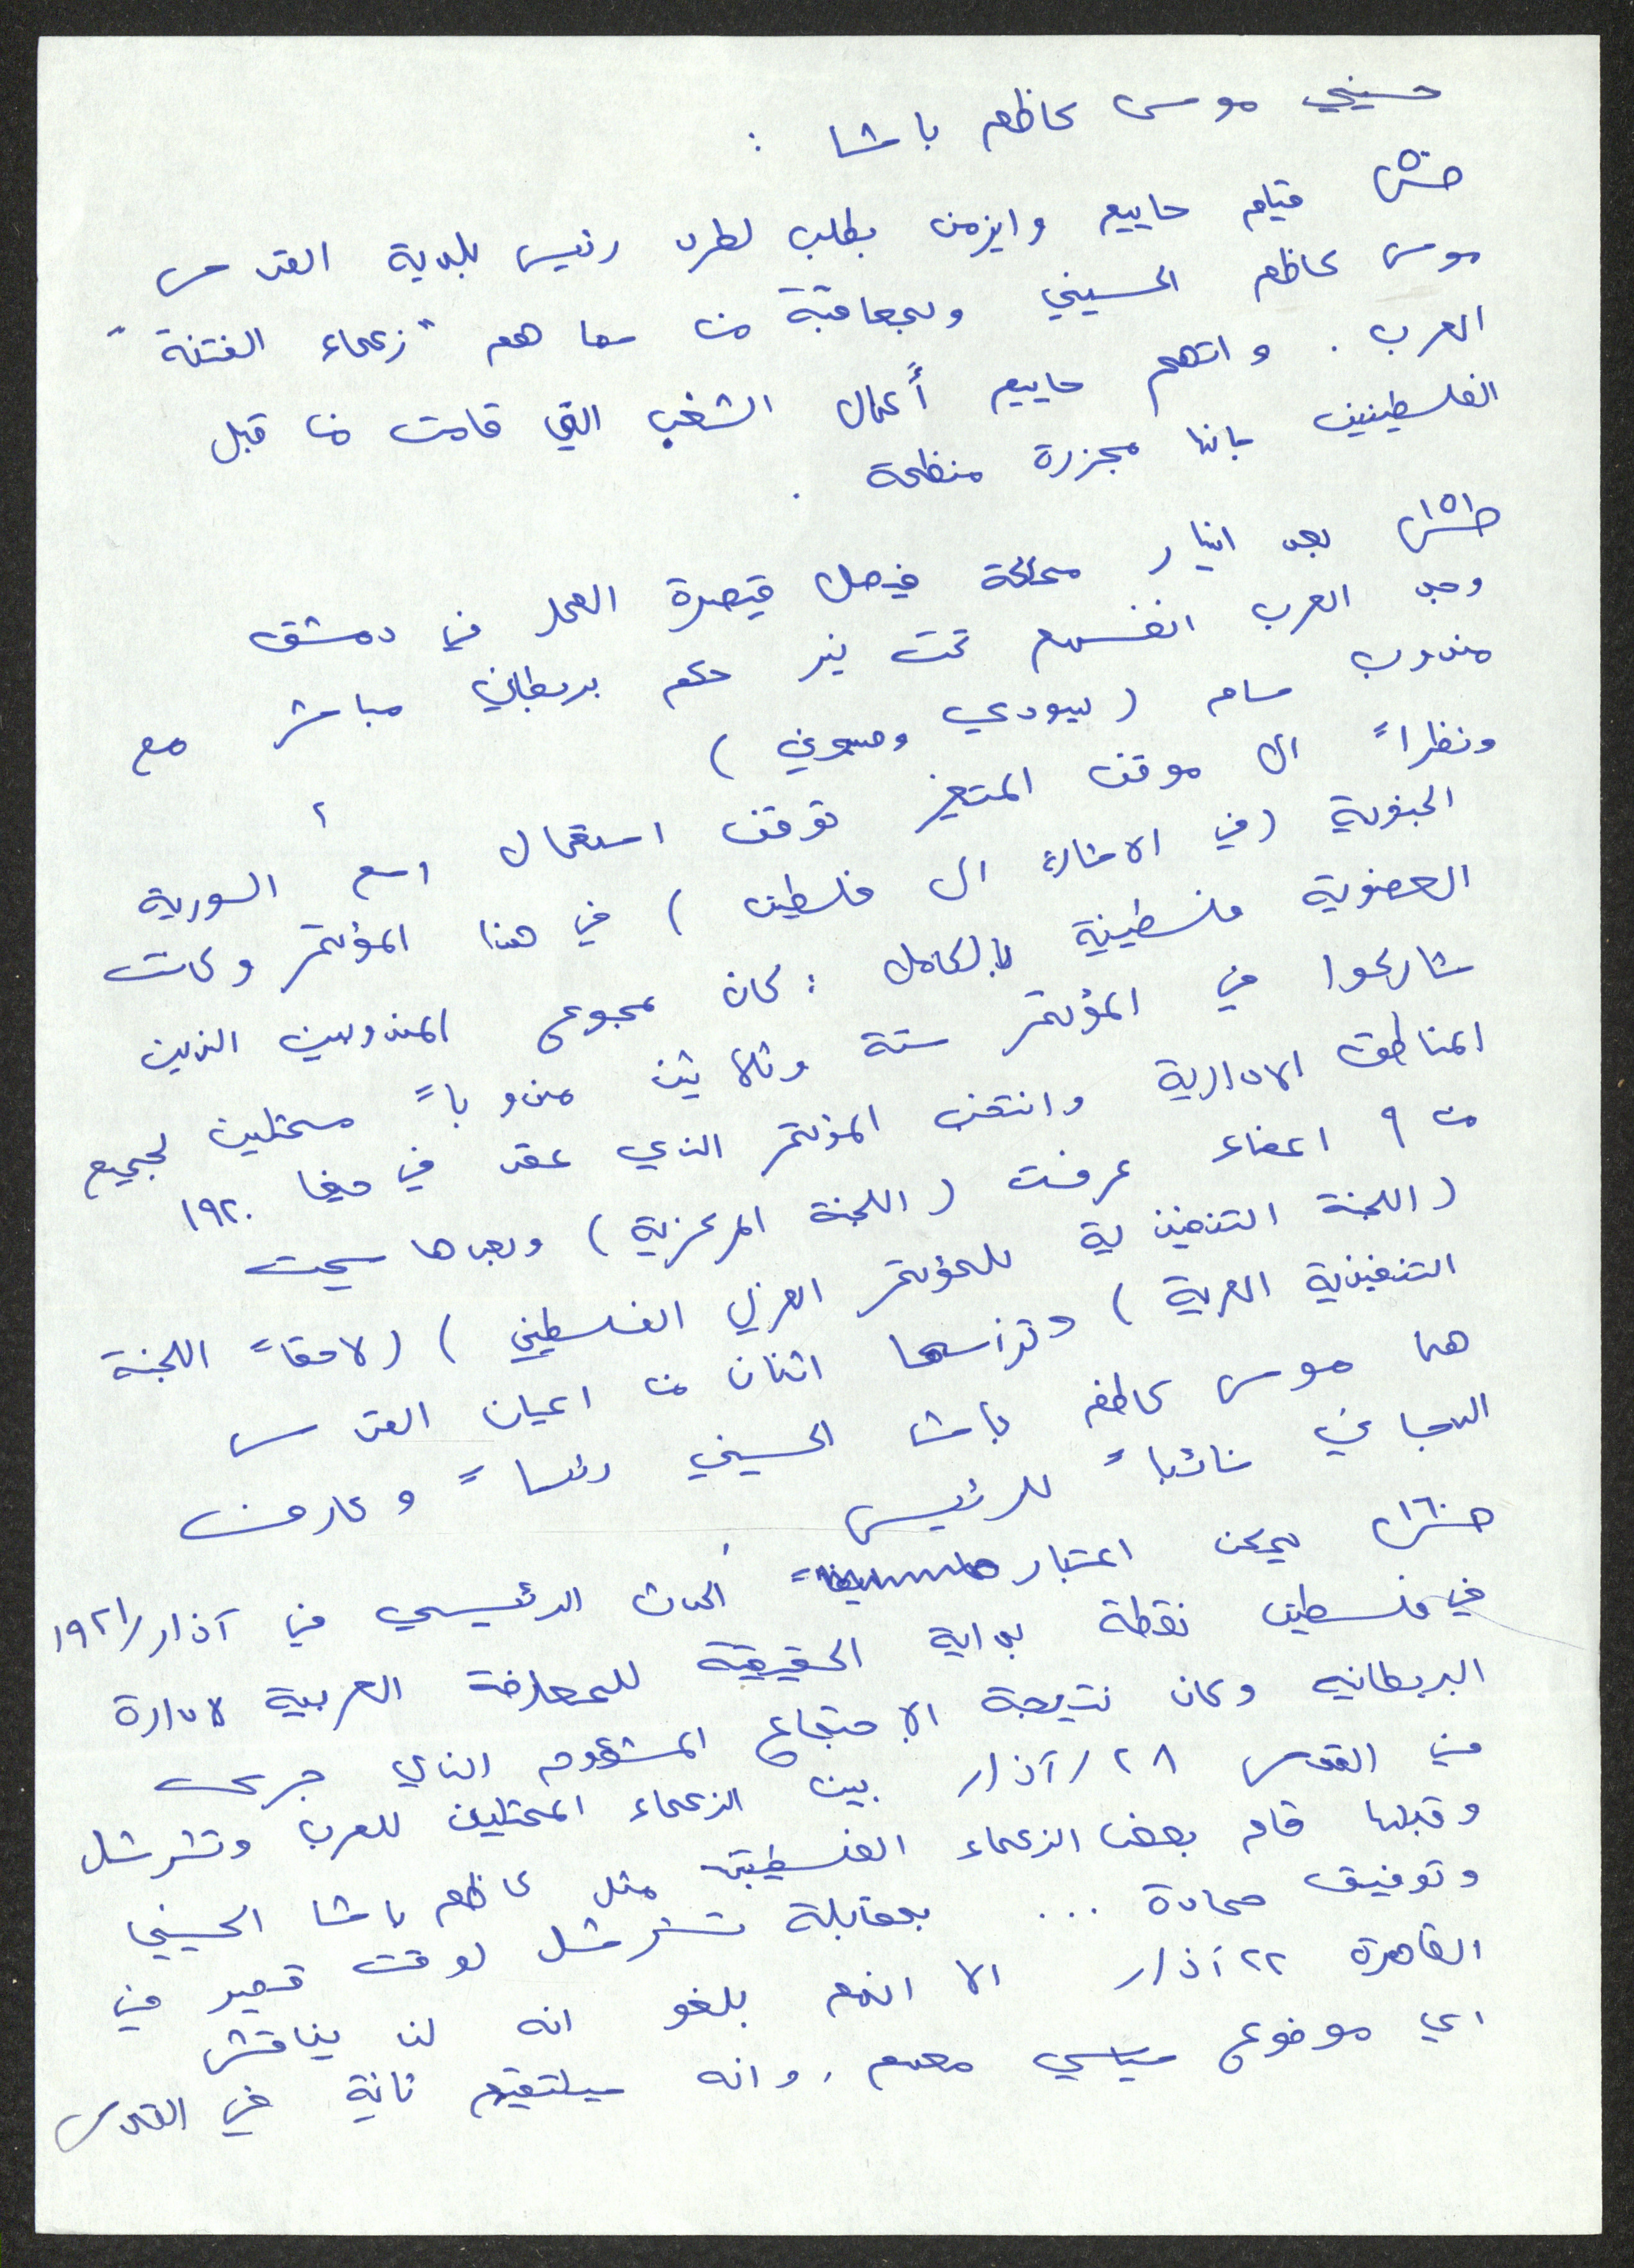 حسيني موسى كاظم باشا :
ص٥٦ قيام حاييم وايزمن بطلب لطرد رئيس بلدية القدس
موسى كاظم الحسيني وبمعاقبة من سماهم "زعماء الفتنة"
العرب . واتهم حاييم أعمال الشغب التي قامت من قبل
الفلسطينين بانها مجزرة منظمة .
بعد انهيار مملكة فيصل قيصرة العمر في دمشق
وجد العرب انفسهم تحت نير حكم بريطاني مباشر مع
مندوب سام (يهودي وصهيوني)
ونظراً الى موقف المتغير توقف استعمال اسم السورية
الجنوبية (في الاشارة الى فلسطين) في هذا المؤتمر وكانت
العضوية فلسطينية بالكامل : كان مجموع المندوبين الذين
شاركوا في المؤتمر ستة وثلاثين مندوباً ممثلين لجميع
المناطق الادارية وانتخب المؤتمر الذي عقد في حيفا ١٩٢٠
من ٩ اعضاء عرفت (اللجنة المركزية) وبعدها سميت
(اللجنة التنفيذية للمؤتمر العربي الفلسطيني) (لاحقاً اللجنة
التنفيذية العربية) وترأسها اثنان من اعيان القدس
هما موسى كاظم باشا الحسيني رئيساً وعارف
الدجاني نائباً للرئيس .
يمكن اعتبار الحدث الرئيسي في آذار/١٩٢١
في فلسطين نقطة بداية الحقيقية للمعارضة العربية لادارة
البريطانيه وكان نتيجة الاجتماع المشؤوم الذي جرى
في القدس ٢٨/آذار بين الزعماء الممثلين للعرب وتشرشل
وقبلها قام بعض الزعماء الفلسطينين مثل كاظم باشا الحسيني
وتوفيق حمادة ... بمقابلة تشرشل لوقت قصير في
القاهرة ٢٢ آذار الا انهم بلغو انه لن يناقش
اي موضوع سياسي معهم , وانه سيلتقيهم ثانية في القدس